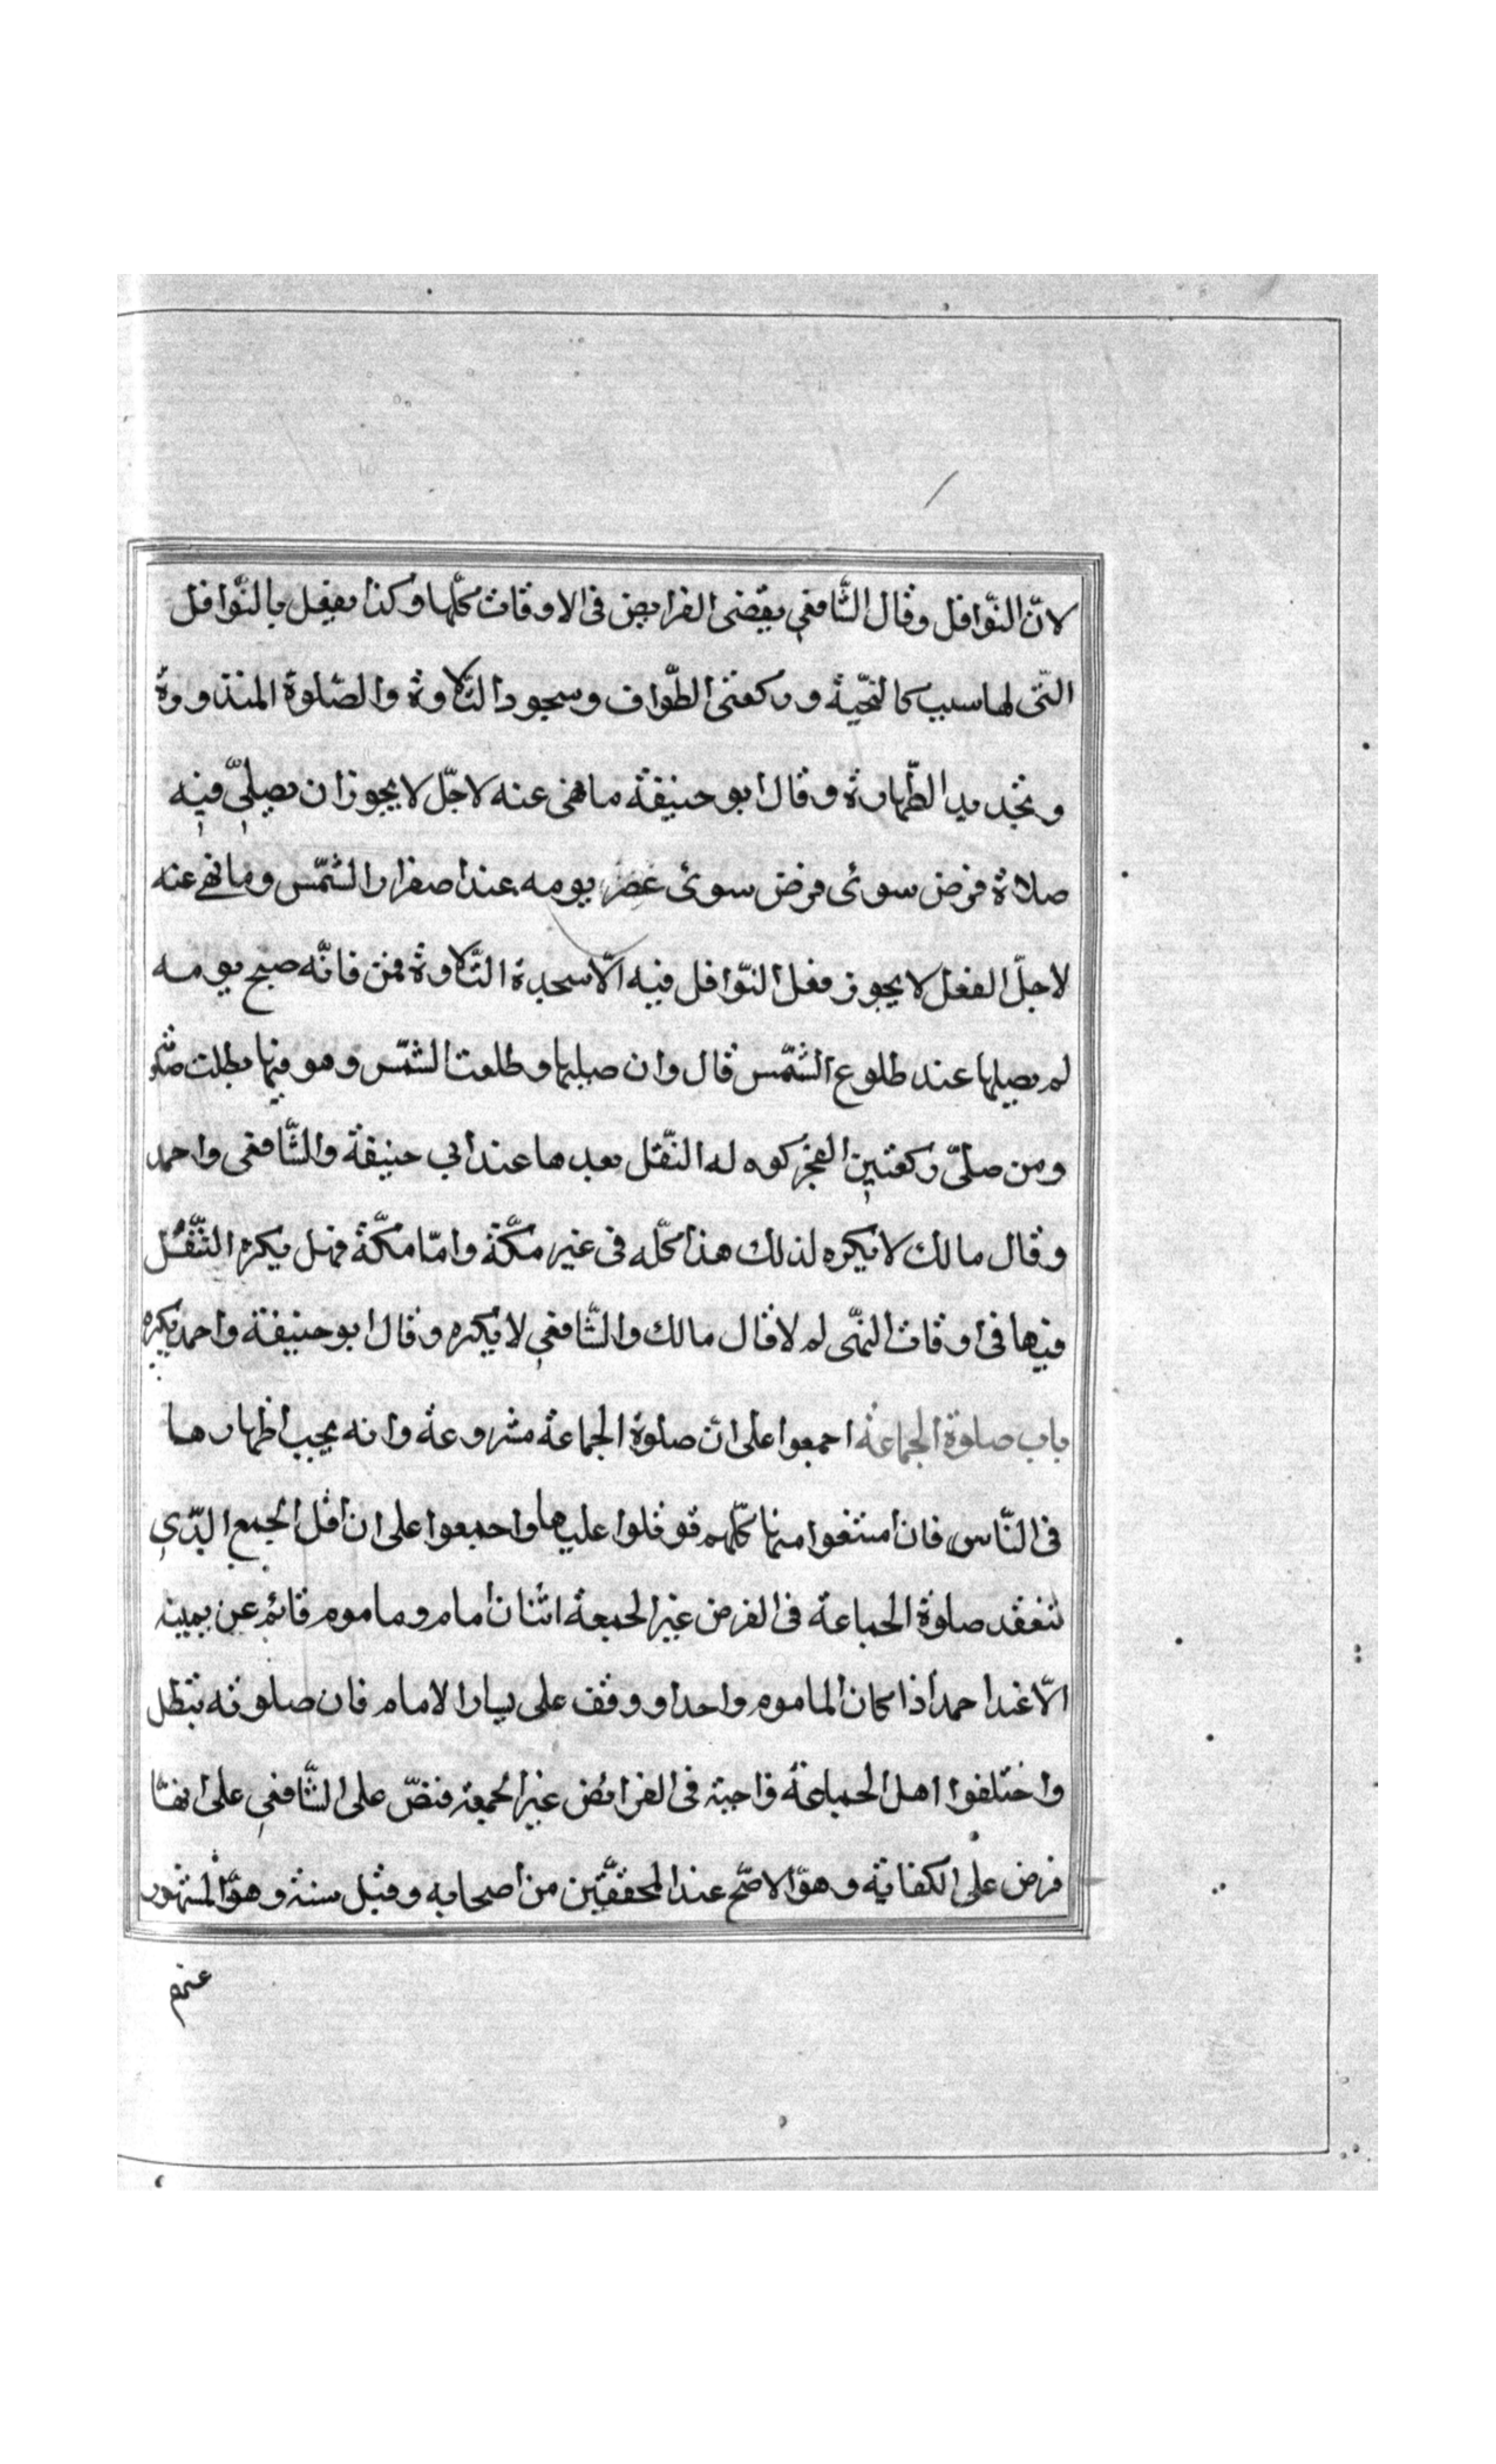 لانّ النّوافل وقال الشّافعي يقضى الفرايض فى الاوقات كلّها وكذا يفعل بالنّوافل
التّى لها سبب كالتحيّة وركعتى الطّواف وسجود التّلاوة والصّلوة المنذورة
وتجديد الطّهارة وقال ابو حنيفة ما نهى عنه لاجّل لا يجوز ان يصلّى فيه
صلاة فرض سوى فرض سوى عصر يومه عند اصفرار الشّمس وما نهى عنه
لاجلّ الفعل لا يجوز فعل النّوافل فيه الّا سجدة التّلاوة فمن فاتّه صبح يومه
لم يصليها عند طلوع الشّمس قال وان صليها وطلعت الشّمس وهو فيها بطلت
ومن صلّى ركعتين الفجر كره له النّفل بعدها عند ابى حنيفة والشّافعى واحمد
وقال مالك لا يكره لذلك هذا محلّه فى غير مكّة وامّا مكّة فهل يكره التّنفّل
فيها فى اوقات النهّى لم لا قال مالك والشّافعي لا يكره وقال ابو حنيفة واحمد يكره
باب صلوة الجماعة اجمعوا على انّ صلوة الجماعة مشروعة وانه يجب اظهارها
فى النّاس فان امتنعوا منها كلّهم قوتلوا عليها واجمعوا على ان اقل الجمع الذّي
تنعقد صلوة الجماعة فى الفرض غير الجمعة اثنان امام وماموم قائم عن يمينه
الّا عند احمد اذا كان الماموم واحدا ووقف على يسار الامام فان صلوته تبطل
واختلفوا اهل الجماعة واجبة فى الفرائض غير الجمعة فنصّ على الشّافعي على انهّا
فرض على الكفاية وهوّ الاصحّ عند المحققّين من اصحابه وقيل سنة وهوّ المشهور
عنهم